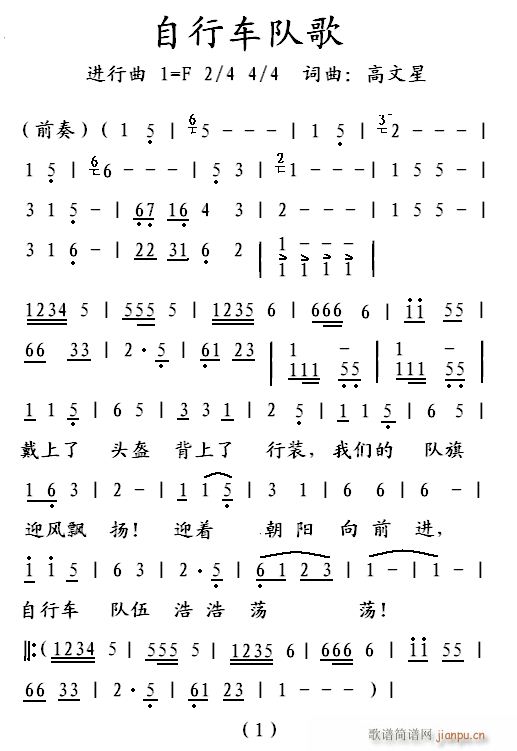 自行车队歌
进行曲 1=F 2/4 4/4 词曲：高文星
（前奏）（1 5 | 6 5 - - - | 1 5 | 3 2 - - - |
1 5 | 6 6 - - - | 5 3 | 2 1 - - - | 1 5 5 - |
3 1 5 - | 67 16 4 3 | 2 - - - | 1 5 5 - |
3 1 6 - | 22 31 6 2 | 1 - - - |
1 1 1 1
1234 5 | 555 5 | 1235 6 | 666 6 | 11 55 |
66 33 | 2 · 5 | 61 23 | 1 - | 1 - |
111 55 111 55
1 1 5 | 6 5 | 3 3 1 | 2 5 | 1 1 5 | 6 - |
戴上了 头盔 背上了 行装，我们的 队旗
1 6 3 | 2 - | 1 1 5 | 3 1 | 6 6 | 6 - |
迎风飘 扬！ 迎着 朝阳 向前 进，
1 1 5 | 6 3 | 2 · 5 | 6 1 2 3 | 1 - | 1 - |
自行车 队伍 浩浩 荡 荡！
‖:（1234 5 | 555 5 | 1235 6 | 666 6 | 11 55 |
66 33 | 2 · 5 | 61 23 | 1 - ）|
（1）
歌谱简谱网
jianpu.cn